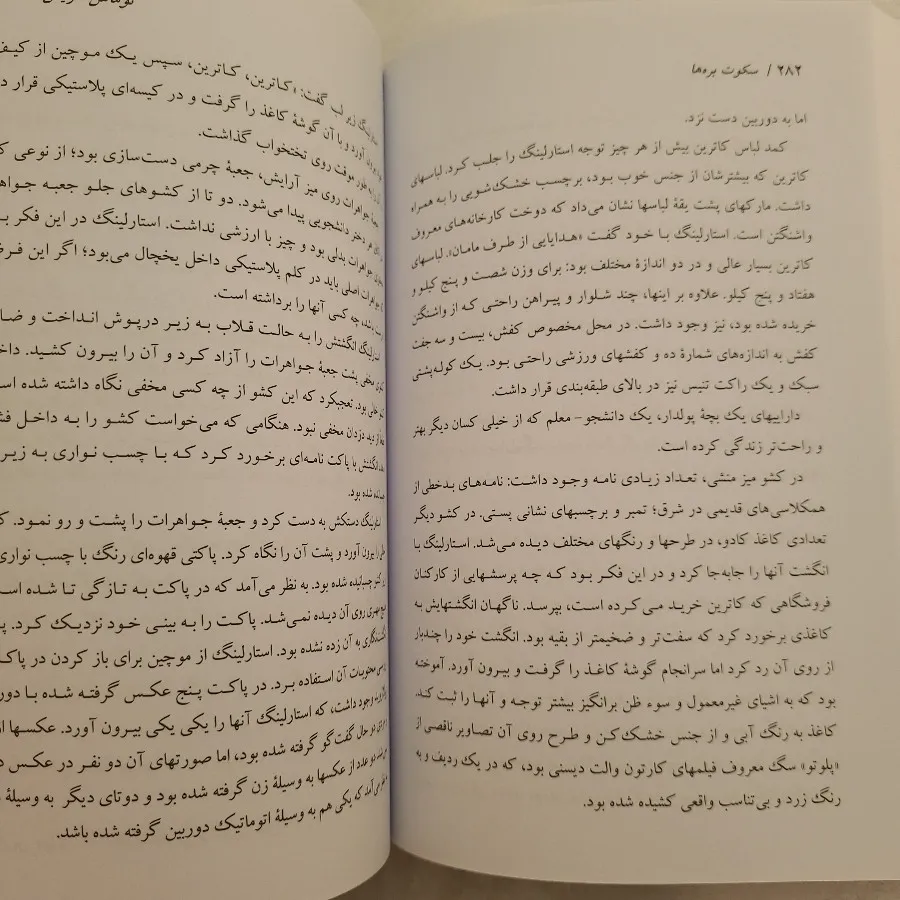 ۲۸۲ / سکوت بره‌ها
اما به دوربین دست نزد.
کمد لباس کاترین بیش از هر چیز توجه استارلینگ را جلب کرد. لباسهای
کاترین که بیشترشان از جنس خوب بود، برچسب خشک‌شویی را به همراه
داشت. مارکهای پشت یقهٔ لباسها نشان می‌داد که دوخت کارخانه‌های معروف
واشنگتن است. استارلینگ با خود گفت «هدایایی از طرف مامان». لباسهای
کاترین بسیار عالی و در دو اندازهٔ مختلف بود: برای وزن شصت و پنج کیلو و
هفتاد و پنج کیلو. علاوه بر اینها، چند شلوار و پیراهن راحتی که از واشنگتن
خریده شده بود، نیز وجود داشت. در محل مخصوص کفش، بیست و سه جفت
کفش به اندازه‌های شمارهٔ ده و کفشهای ورزشی راحتی بود. یک کوله‌پشتی
سبک و یک راکت تنیس نیز در بالای طبقه‌بندی قرار داشت.
داراییهای یک بچهٔ پولدار، یک دانشجو – معلم که از خیلی کسان دیگر بهتر
و راحت‌تر زندگی کرده است.
در کشو میز منشی، تعداد زیادی نامه وجود داشت: نامه‌های بدخطی از
همکلاسی‌های قدیمی در شرق؛ تمبر و برچسبهای نشانی پستی. در کشو دیگر
تعدادی کاغذ کادو، در طرحها و رنگهای مختلف دیده می‌شد. استارلینگ با
انگشت آنها را جابه‌جا کرد و در این فکر بود که چه پرسشهایی از کارکنان
فروشگاهی که کاترین خرید می‌کرده است، بپرسد. ناگهان انگشتهایش به
کاغذی برخورد کرد که سفت‌تر و ضخیمتر از بقیه بود. انگشت خود را چندبار
از روی آن رد کرد اما سرانجام گوشهٔ کاغذ را گرفت و بیرون آورد. آموخته
بود که به اشیای غیرمعمول و سوء ظن برانگیز بیشتر توجه و آنها را ثبت کند.
کاغذ به رنگ آبی و از جنس خشک‌کن و طرح روی آن تصاویر ناقصی از
«پلوتو» سگ معروف فیلمهای کارتون والت دیسنی بود، که در یک ردیف و به
رنگ زرد و بی‌تناسب واقعی کشیده شده بود.
زیر لب گفت: «کاترین، کاترین، سپس یک موچین از کیف
آورد و با آن گوشهٔ کاغذ را گرفت و در کیسه‌ای پلاستیکی قرار
طور موقت روی تختخواب گذاشت.
جواهرات روی میز آرایش، جعبهٔ چرمی دست‌سازی بود؛ از نوعی
هر دختر دانشجویی پیدا می‌شود. دو تا از کشوهای جلو جعبه
جواهرات بدلی بود و چیز با ارزشی نداشت. استارلینگ در این فکر
جواهرات اصلی باید در کلم پلاستیکی داخل یخچال می‌بود؛ اگر این
چه کسی آنها را برداشته است.
انگشتش را به حالت قلاب به زیر درپوش انداخت و
مخفی پشت جعبهٔ جواهرات را آزاد کرد و آن را بیرون کشید.
خالی بود. تعجبکرد که این کشو از چه کسی مخفی نگاه داشته شده
از دید دزدان مخفی نبود. هنگامی که می‌خواست کشو را به داخل
انگشتش با پاکت نامه‌ای برخورد کرد که با چسب نواری به زیر
شده بود.
دستکش به دست کرد و جعبهٔ جواهرات را پشت و رو نمود.
بیرون آورد و پشت آن را نگاه کرد. پاکتی قهوه‌ای رنگ با چسب نواری
چسبانیده شده بود. به نظر می‌آمد که در پاکت به تازگی تا شده
روی آن دیده نمی‌شد. پاکت را به بینی خود نزدیک کرد.
به آن زده نشده بود. استارلینگ از موچین برای باز کردن در
محتویات آن استفاده برد. در پاکت پنج عکس گرفته شده با
وجود داشت، که استارلینگ آنها را یکی یکی بیرون آورد. عکسها
در حال گفت‌گو گرفته شده بود، اما صورتهای آن دو نفر در عکس
دو عدد از عکسها به وسیلهٔ زن گرفته شده بود و دوتای دیگر به وسیلهٔ
می‌آمد که یکی هم به وسیلهٔ اتوماتیک دوربین گرفته شده باشد.